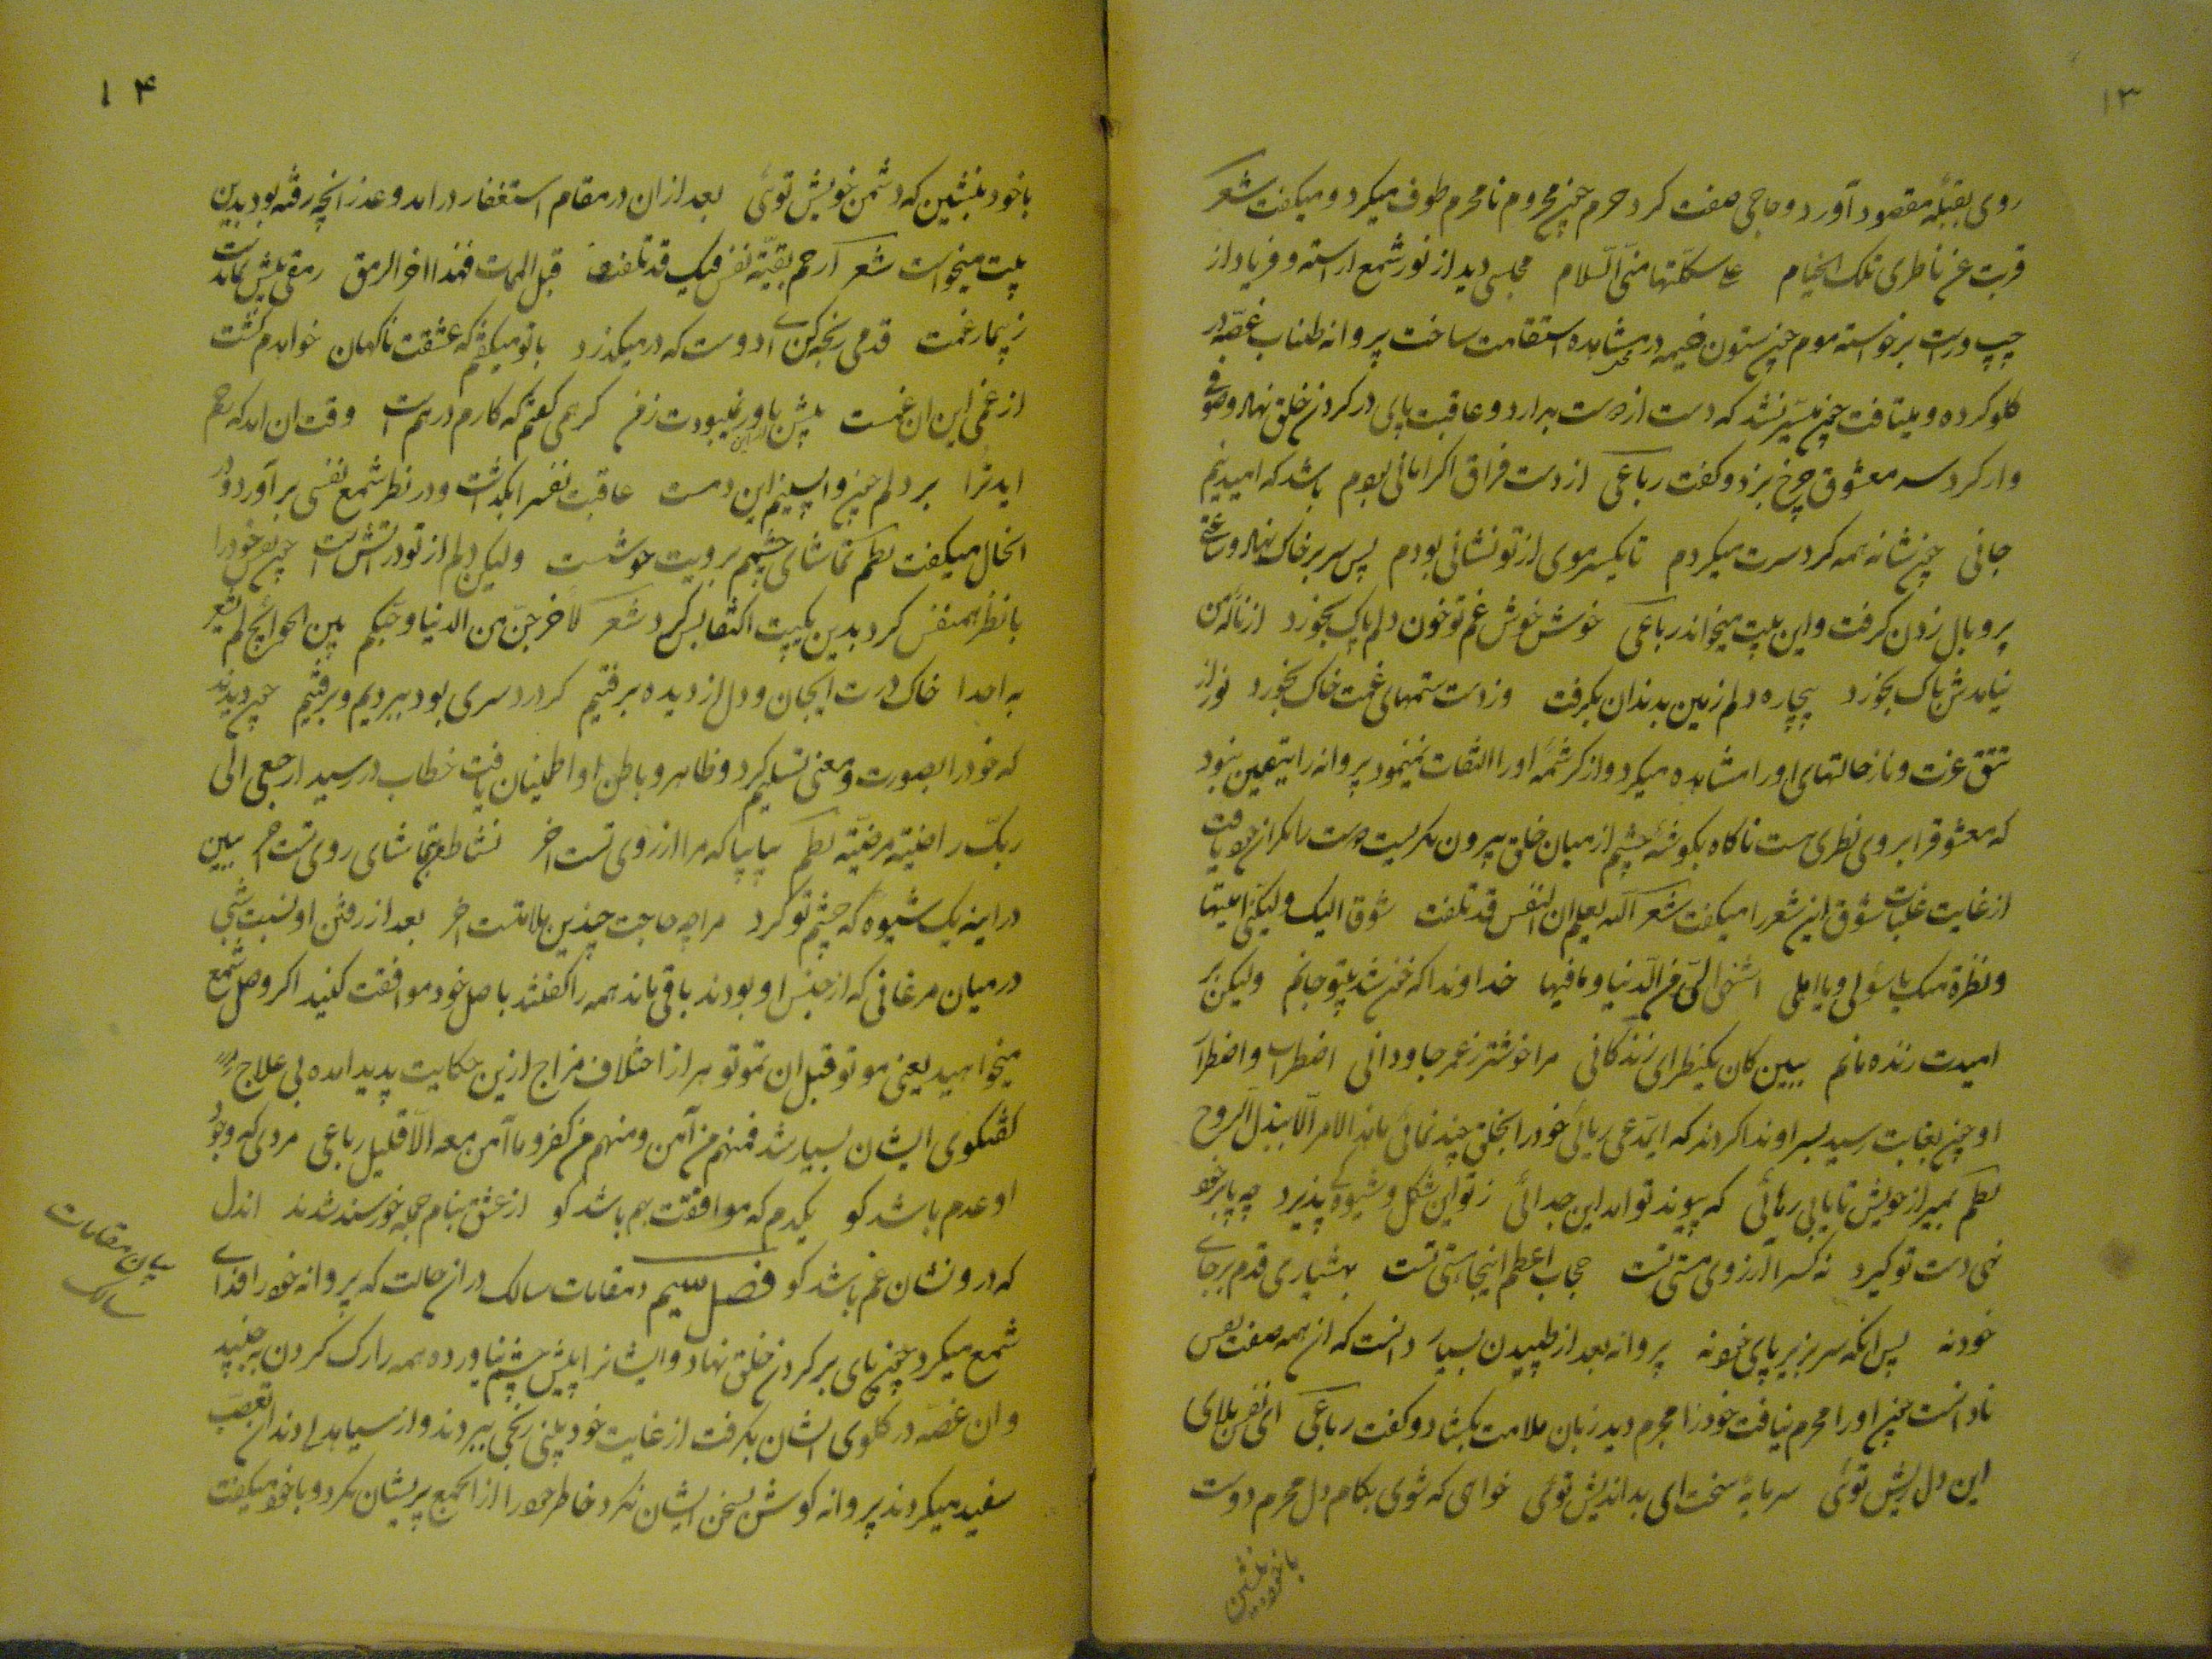 ۱۳
روی بقبلهٔ مقصود آورد و حاجی صفت کرد حرم چون محروم نامحرم طوف میکرد و میکفت شعر
قربت عن ناظری تلک الخیام علی سکّنتها منی السّلام مجلسی دید از نور شمع اراسته و فریاد از
چپ و راست برخواسته موم چون ستون خیمه در مشاهده استقامت ساخت پروانه طناب غصّه در
کلو کرده و میشتافت چون میسّر نشد که دست از دست بدارد و عاقبت پای در کردن خلق نهاد و صوفی
وار کرد سه معشوق چرخ بزد و کفت رباعی از دست فراق اکر امانی بودم باشد که امیدنیم
جانی چون شانه همه کرد سرت میکردم تا یکسر موی از تو نشانی بودم پس سر بر خاک نهاد و ساعتی
پر و بال زدن کرفت و این بیت میخواند رباعی خوش خوش غم تو خون دلم پاک بخورد از ناله من
نیامدش باک بخورد بیچاره دلم زمین بدندان بکرفت وز دست ستمهای غمت خاک بخورد نور از
تتق عزت و ناز حالتهای اورا مشاهده میکرد و از کرشمه اورا التفات نمینمود پروانه را یقین بنود
که معشوقرا بروی نظری هست ناکاه بکوشهٔ چشم از میان خلق بیرون نکریست دوست را نکران خود یافت
از غایت غلبات شوق این شعر را میکفت شعر الله یعلم ان النفس قد تلفت شوقا الیک ولیکنی امنیها
ونظرة منک یا سؤلی ویا املی اشهی الیّ من الدّنیا وما فیها خداوندا که خون شد بیتو جانم ولیکن بر
امیدت زنده مانم ببین کان یکنظر ای زندکانی مرا خوشتر ز عمر جاودانی اضطراب و اضطرار
او چون بغایت رسید بسر او ندا کردند که ایمدعی ریائی خود را بخلق چند نمائی ما هذا الامر الّا ببذل الروح
نظم بمیر از خویش تا یابی رهائی که پیوند تو امد این جدائی ز تو این شکل و شیوه کی پذیرد چه پا بر خود
نهی دست تو کیرد نه کس را آرزوی مستی تست حجاب اعظم اینجا هستی تست بهشیاری قدم بر جای
خود نه پس انکه سر بزیر پای خود نه پروانه بعد از طپیدن بسیار دانست که ان همه صفت نفس
نادانست چون اورا محرم نیافت خودرا مجرم دید زبان ملامت بکشاد و کفت رباعی ای نفس بلای
این دل ریش توئی سرمایهٔ سخت ای بداندیش توئی خواهی که شوی بکام دل محرم دوست
با خود منشین
۱۴
با خود منشین که دشمن خویش توئی بعد از ان در مقام استغفار در امد و عذر انچه رفته بود بدین
بیت میخواست شعر ارحم بقیّة نفس فیک قد تلفت قبل الممات فهذا اخر الرمق رمقی بیش نماندست
ز بیمار غمت قدمی رنجه کن ای دوست که در میکذرد با تو میکفتم که عشقت ناکهان خواهدم کشت
از غمی این ان غمست پیش باور نمیبودت ز من کرهمی کفتم که کارم در همست وقت ان امد که رحم
ایدترا بر دلم چون واپسینم این دمست عاقبت نفس را بکداشت و در نظر شمع نفسی بر آورد و در
انحال میکفت نظم تماشای چشمم برویت خوشست ولیکن دلم از تو در اتش است چون نفس خودرا
با نظر همنفس کرد بدین یکبیت اکتفا بس کرد شعر لاخرجنّ من الدنیا وحبّکم بین الجوانح لم یشعر
به احدا خاک درت ایجان و دل از دیده برفتیم کر دردسری بود ببردیم و برفتیم چون دیدند
که خودرا بصورت و معنی تسلیم کرد و ظاهر و باطن او اطمینان یافت خطاب در رسید ارجعی الی
ربّک راضیة مرضیّة نظم بیا بیا که مرا ارزوی تست اخر نشاط من بتماشای روی تست اخر ببین
در اینه یک شیوه که چشم تو کرد مرا چه حاجت چندین ملامتست اخر بعد از رفتن او نسبت شبی
در میان مرغانی که از جنس او بودند باقی ماند همه را کفتند با اصل خود موافقت کنید اکر وصل شمع
میخواهید یعنی موتوا قبل ان تموتوا هر از اختلاف مزاج ازین حکایت پدید امده بی علاج
کفتکوی ایشان بسیار شد فمنهم من آمن ومنهم من کفر وما آمن معه الّا قلیل رباعی مردی که وجود
او عدم باشد کو یکدم که موافقت بهم باشد کو از عشق بنام جمله خورسند شدند اندل
که درو نشان غم باشد کو فصل سیم در مقامات سالک در ان حالت که پروانه خودرا فدای
شمع میکرد چون پای بر کردن خلق نهاد و ایشانرا پیش چشم نیاورده همه را رک کردن بجنبید
و ان غصّه در کلوی ایشان بکرفت از غایت خود بینی رنجی ببردند و از سیاهدلی دندان تعصّب
سفید میکردند پروانه کوش بسخن ایشان نکرد خاطر خودرا از انجمع پریشان نکرد و با خود میکفت
بیان مقامات
سالک